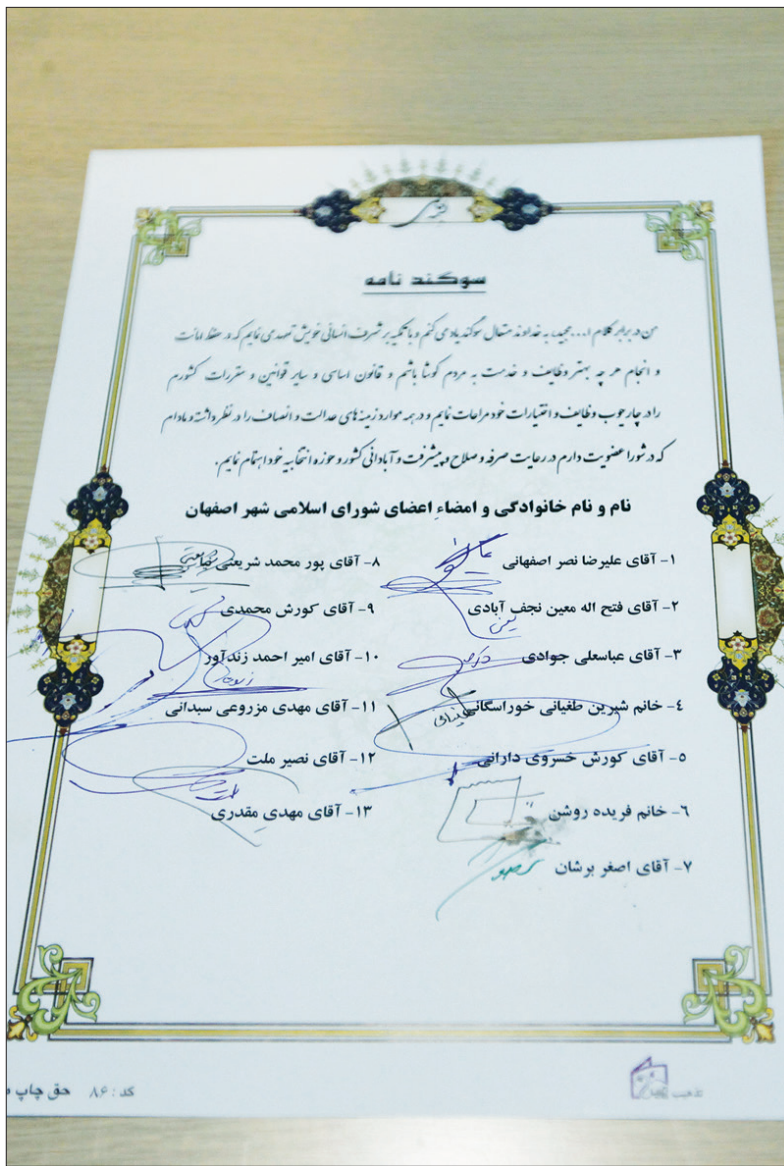 سوگند نامه
من در برابر کلام ا... مجید، به خداوند متعال سوگند یاد می کنم و با تکیه بر شرف انسانی خویش تعهد می نمایم که در حفظ امانت
و انجام هر چه بهتر وظایف و خدمت به مردم کوشا باشم و قانون اساسی و سایر قوانین و مقررات کشورم
را در چارچوب وظایف و اختیارات خود مراعات نمایم و در همه موارد زمینه های عدالت و انصاف را در نظر داشته و مادام
که در شورا عضویت دارم در رعایت صرفه و صلاح و پیشرفت و آبادانی کشور و حوزه انتخابیه خود اهتمام نمایم.
نام و نام خانوادگی و امضاءِ اعضای شورای اسلامی شهر اصفهان
۱- آقای علیرضا نصر اصفهانی
۲- آقای فتح اله معین نجف آبادی
۳- آقای عباسعلی جوادی
۴- خانم شیرین طغیانی خوراسگانی
۵- آقای کورش خسروی دارانی
۶- خانم فریده روشن
۷- آقای اصغر برشان
۸- آقای پور محمد شریعتی
۹- آقای کورش محمدی
۱۰- آقای امیر احمد زندآور
۱۱- آقای مهدی مزروعی سبدانی
۱۲- آقای نصیر ملت
۱۳- آقای مهدی مقدری
کد: ۸۶ حق چاپ
تذهیب